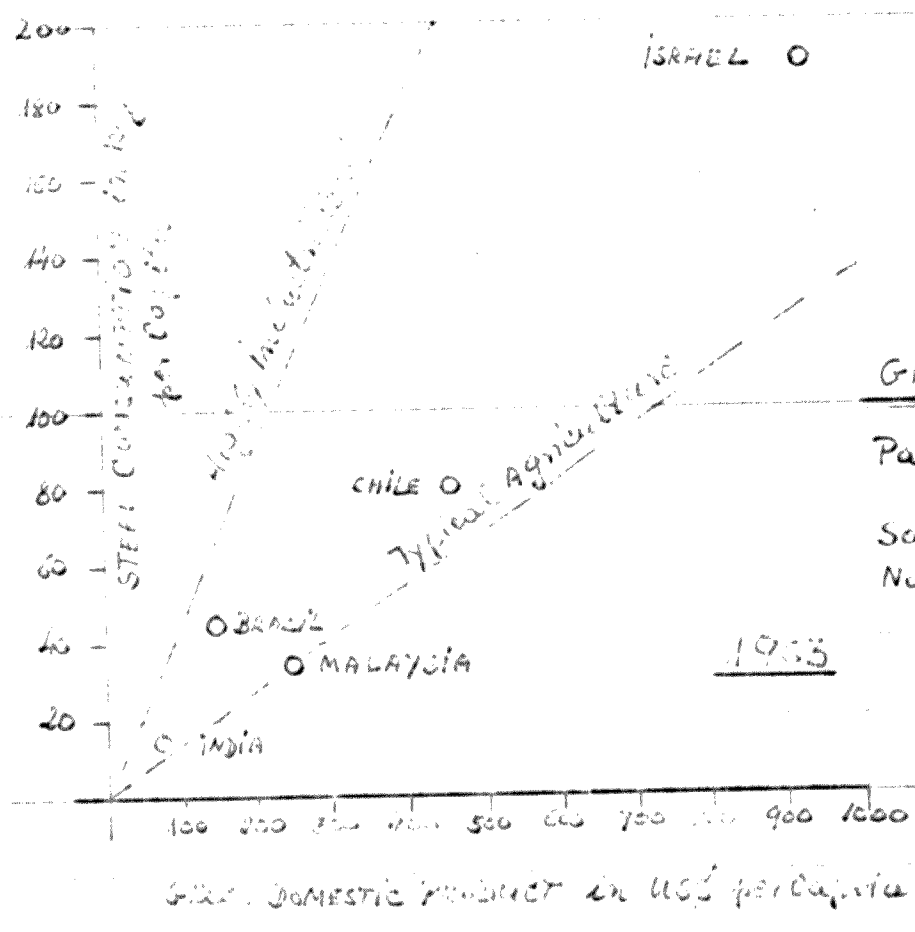 200
ISRAEL
180
160
140
120
100
80
60
40
20
STEEL CONSUMPTION in kg
per Capita
Typical Agriculture
CHILE
BRAZIL
MALAYSIA
INDIA
Pa
So
1963
100 200 300 400 500 600 700 800 900 1000
DOMESTIC PRODUCT in US$ per Capita